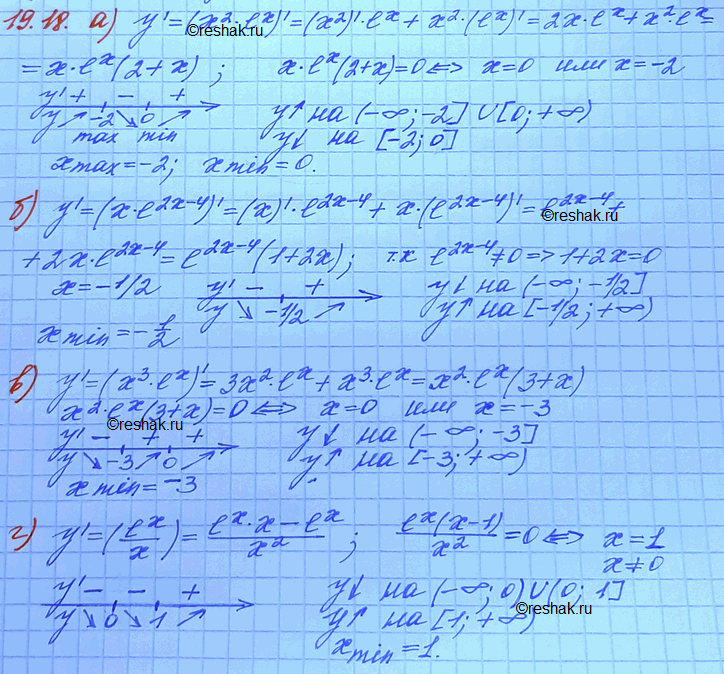 19.18. а) y' = (x²·eˣ)' = (x²)'·eˣ + x²·(eˣ)' = 2x·eˣ + x²·eˣ =
©reshak.ru
= x·eˣ(2+x) ; x·eˣ(2+x)=0 ⇔ x=0 или x=-2
y' + - +
y ↗ -2 ↘ 0 ↗ y↑ на (-∞; -2] ∪ [0; +∞)
max min y↓ на [-2; 0]
xmax = -2; xmin = 0.
б) y' = (x·e²ˣ⁻⁴)' = (x)'·e²ˣ⁻⁴ + x·(e²ˣ⁻⁴)' = e²ˣ⁻⁴ +
©reshak.ru
+ 2x·e²ˣ⁻⁴ = e²ˣ⁻⁴(1+2x); т.к e²ˣ⁻⁴ ≠ 0 => 1+2x=0
x = -1/2 y' - + y↓ на (-∞; -1/2]
y ↘ -1/2 ↗ y↑ на [-1/2; +∞)
xmin = -1/2
в) y' = (x³·eˣ)' = 3x²·eˣ + x³·eˣ = x²·eˣ(3+x)
x²·eˣ(3+x)=0 ⇔ x=0 или x=-3
©reshak.ru
y' - + + y↓ на (-∞; -3]
y ↘ -3 ↗ 0 ↗ y↑ на [-3; +∞)
xmin = -3
г) y' = (eˣ/x) = (eˣ·x - eˣ)/x² ; eˣ(x-1)/x² = 0 ⇔ x = 1
x ≠ 0
y' - - + y↓ на (-∞; 0) ∪ (0; 1]
©reshak.ru
y ↘ 0 ↘ 1 ↗ y↑ на [1; +∞)
xmin = 1.